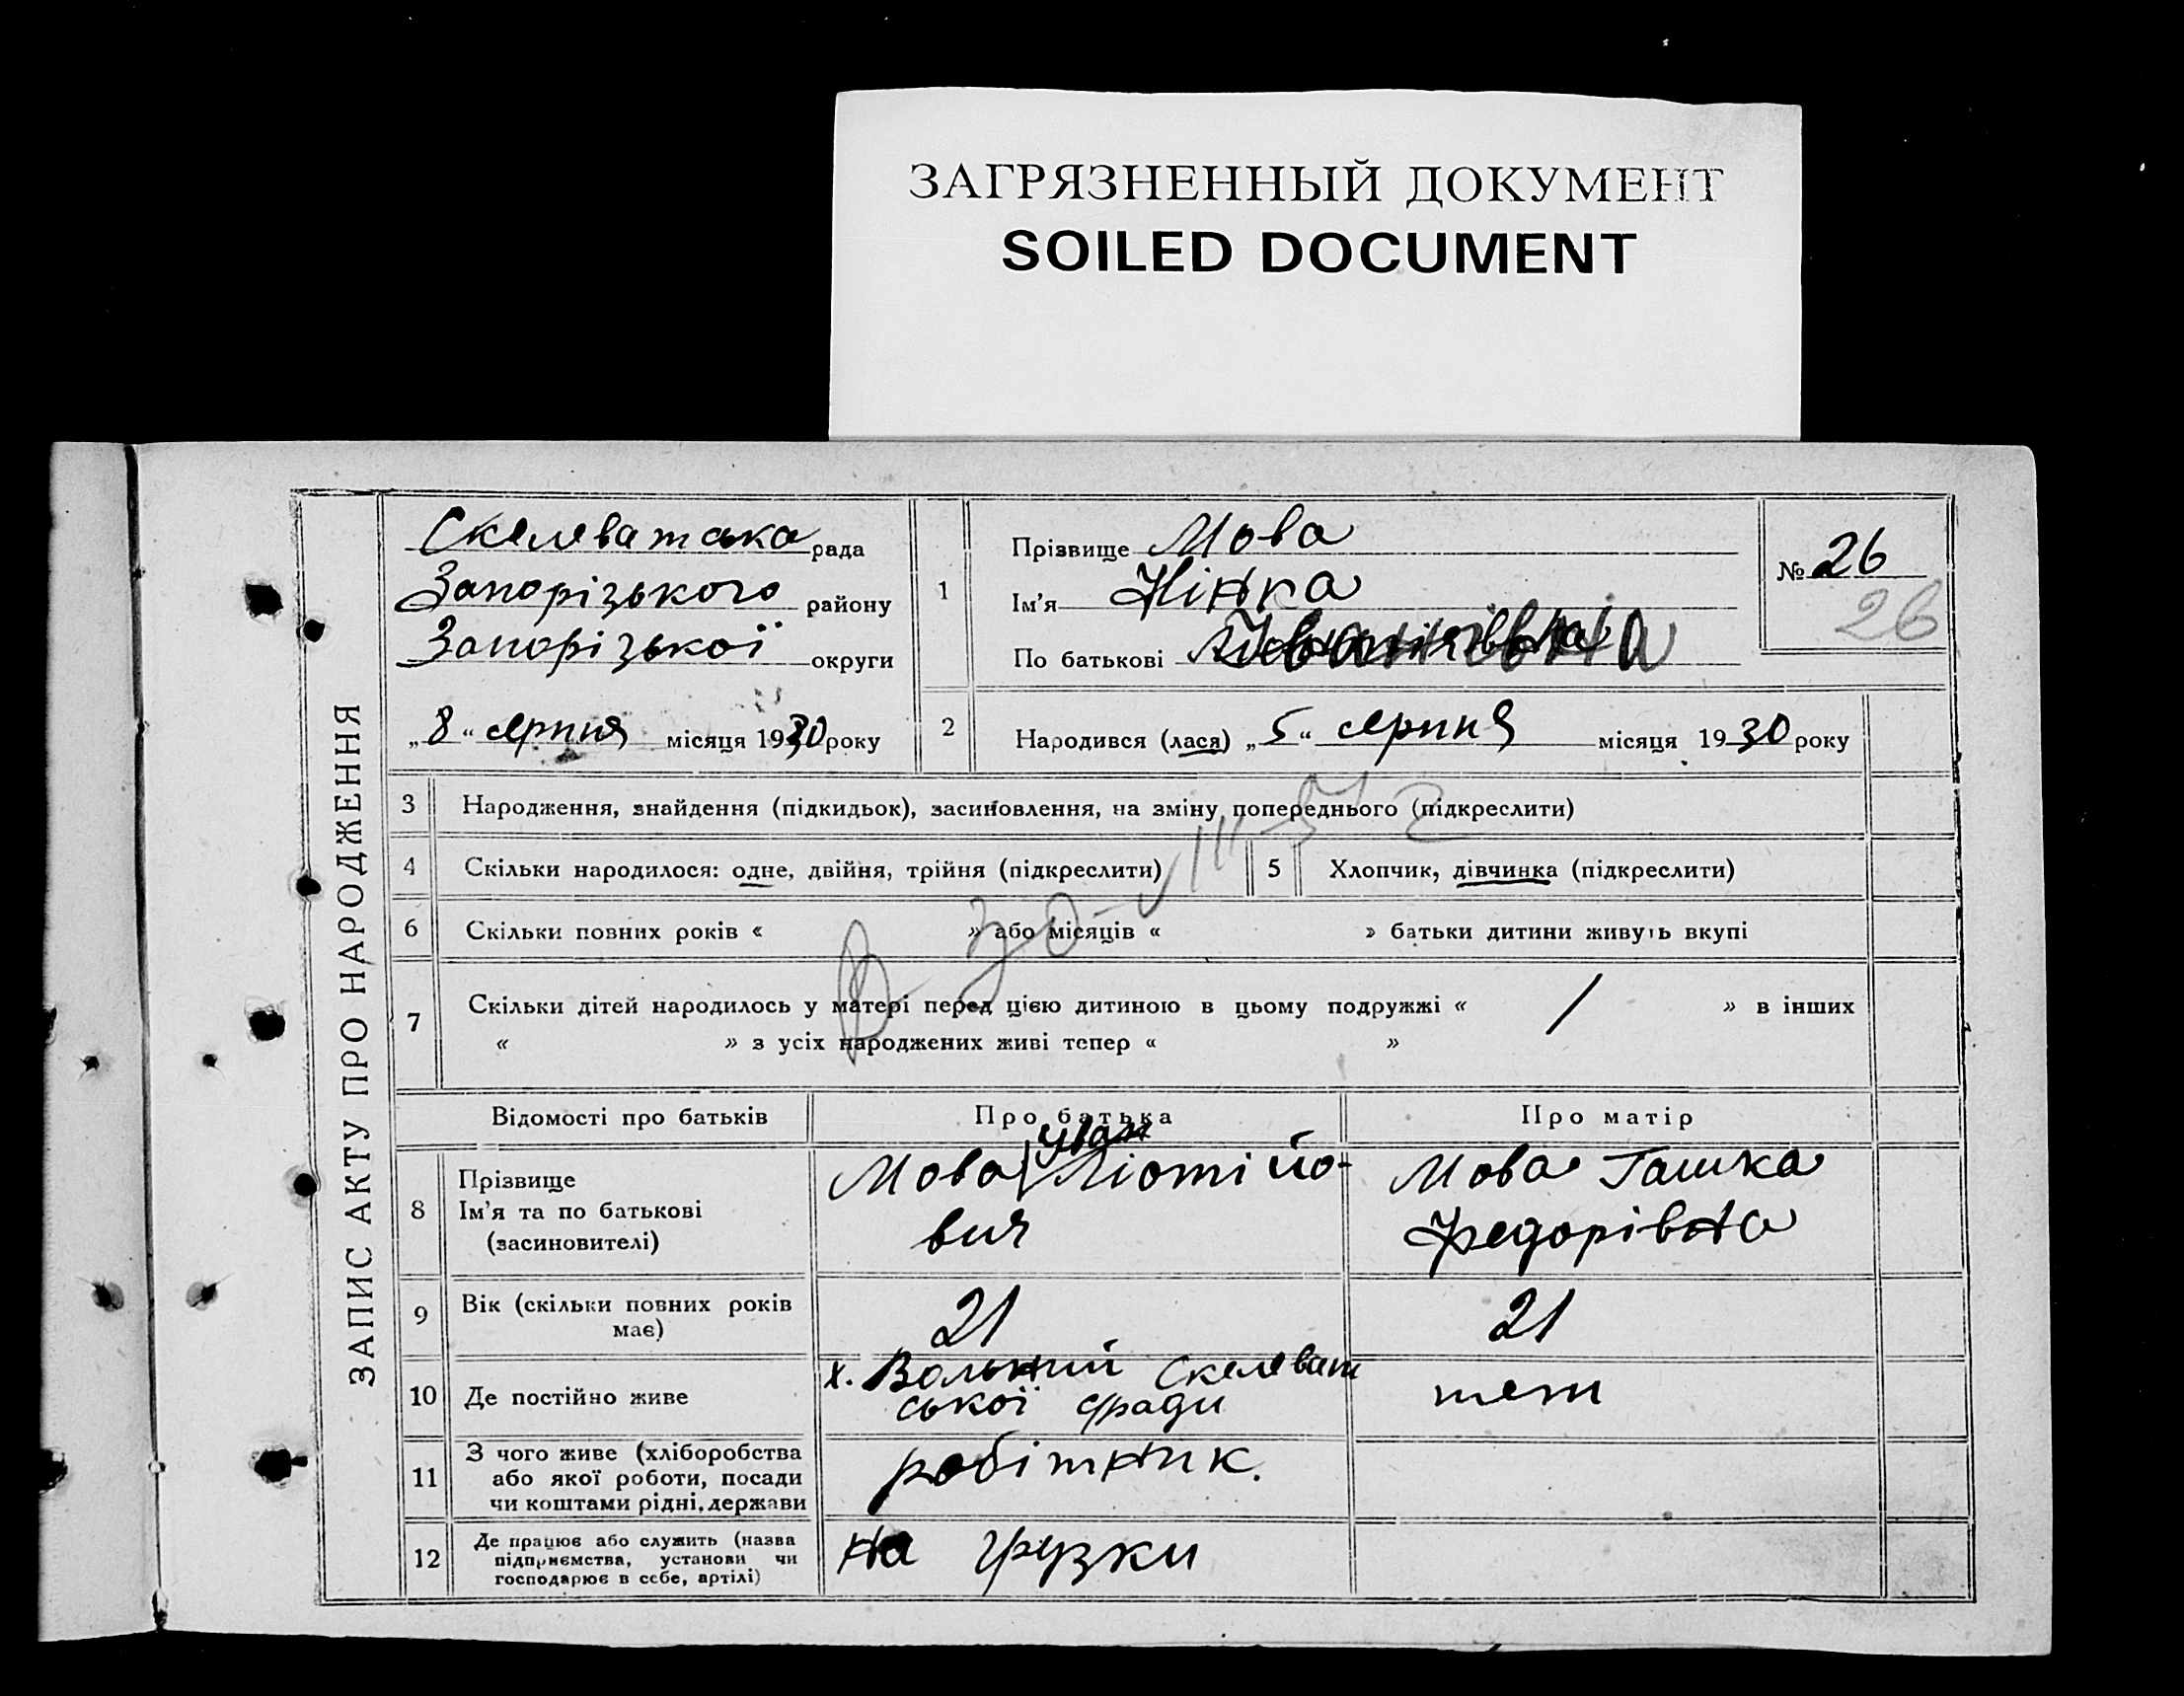 ЗАГРЯЗНЕННЫЙ ДОКУМЕНТ
SOILED DOCUMENT
ЗАПИС АКТУ ПРО НАРОДЖЕННЯ
Скелеватська рада
Запорізького району
Запорізької округи
„8“ серпня місяця 1930 року
1
Прізвище Мова
Ім'я Нінка
По батькові Іванівна
№ 26
26
2 Народився (лася) „5“ серпня місяця 1930 року
3 Народження, знайдення (підкидьок), засиновлення, на зміну попереднього (підкреслити)
4 Скільки народилося: одне, двійня, трійня (підкреслити) 5 Хлопчик, дівчинка (підкреслити)
6 Скільки повних років « » або місяців « » батьки дитини живуть вкупі
7 Скільки дітей народилось у матері перед цією дитиною в цьому подружжі « / » в інших
« » з усіх народжених живі тепер « »
Відомості про батьків Про батька Про матір
8 Прізвище
Ім'я та по батькові
(засиновителі)
Мова
вич
Мова Гашка
Федорівна
9 Вік (скільки повних років
має)
21
21
10 Де постійно живе
х. Вольний Скелеват
ської с/ради
теж
11 З чого живе (хліборобства
або якої роботи, посади
чи коштами рідні, держави
робітник.
12 Де працює або служить (назва
підприємства, установи чи
господарює в себе, артілі)
на грузки